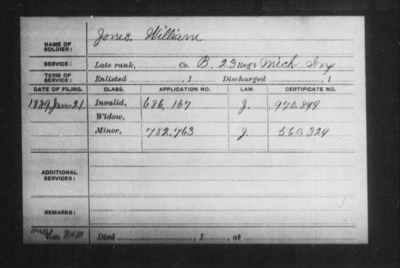 NAME OF SOLDIER: Jones, William
SERVICE: Late rank, Co. B, 23 Reg't Mich Inf
TERM OF SERVICE: Enlisted , 1 Discharged , 1
DATE OF FILING. CLASS. APPLICATION NO. LAW. CERTIFICATE NO.
1889 Jan 21 Invalid, 686.167 J. 970.849
Widow,
Minor, 782.763 J. 560.324
ADDITIONAL SERVICES:
REMARKS:
Died , 1 , at